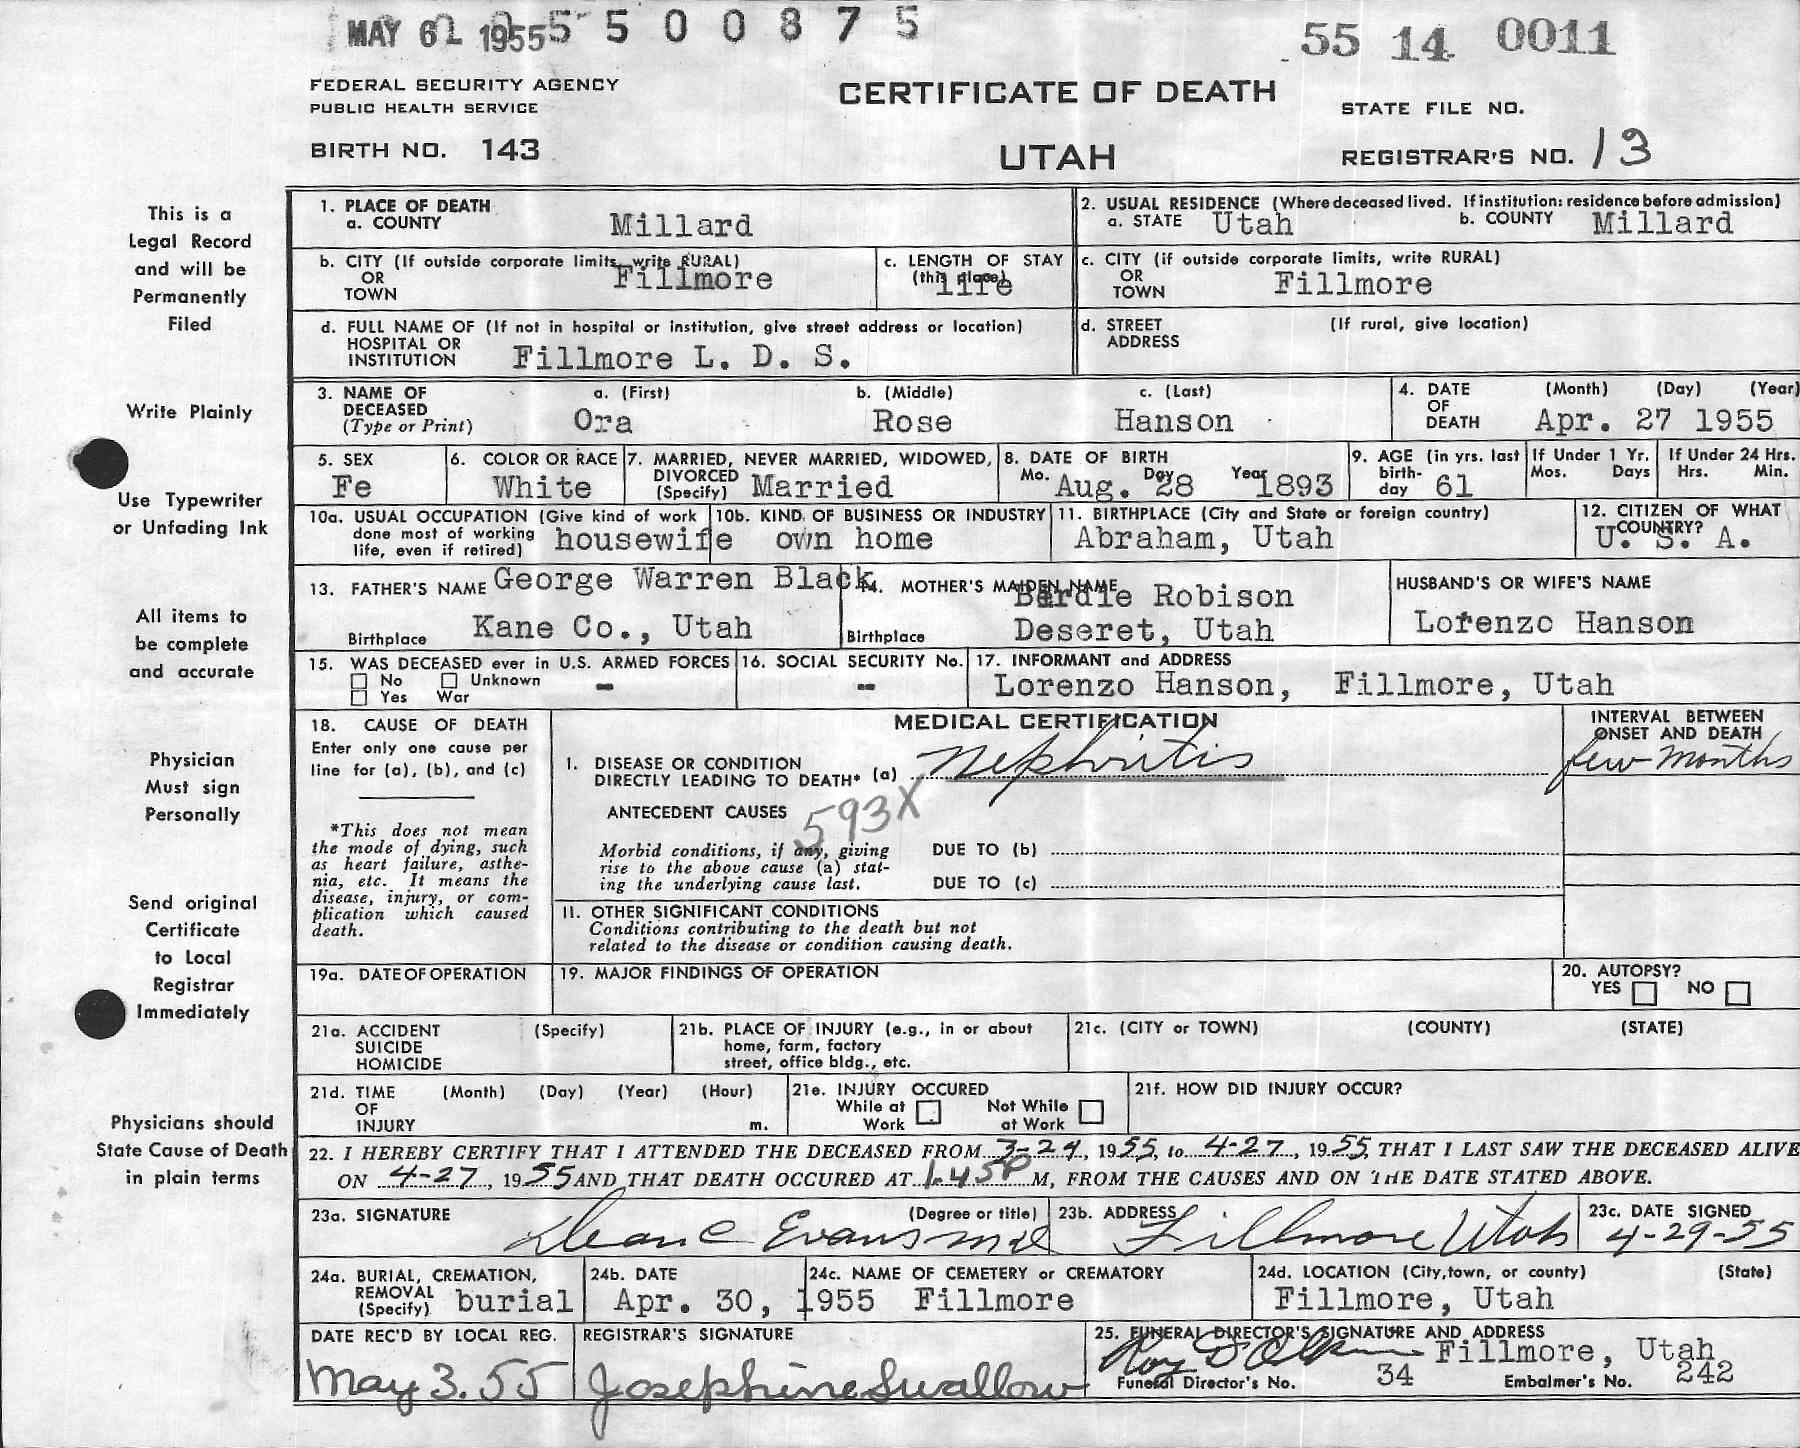 MAY 6 1955 5 5 0 0 8 7 5
55 14 0011
FEDERAL SECURITY AGENCY
PUBLIC HEALTH SERVICE
BIRTH NO. 143
CERTIFICATE OF DEATH
UTAH
STATE FILE NO.
REGISTRAR'S NO. 13
This is a
Legal Record
and will be
Permanently
Filed
Write Plainly
Use Typewriter
or Unfading Ink
All items to
be complete
and accurate
Physician
Must sign
Personally
Send original
Certificate
to Local
Registrar
Immediately
Physicians should
State Cause of Death
in plain terms
1. PLACE OF DEATH
a. COUNTY Millard
2. USUAL RESIDENCE (Where deceased lived. If institution: residence before admission)
a. STATE Utah b. COUNTY Millard
b. CITY (If outside corporate limits, write RURAL)
OR
TOWN Fillmore
c. LENGTH OF STAY
(this place) life
c. CITY (if outside corporate limits, write RURAL)
OR
TOWN Fillmore
d. FULL NAME OF (If not in hospital or institution, give street address or location)
HOSPITAL OR
INSTITUTION Fillmore L. D. S.
d. STREET (If rural, give location)
ADDRESS
3. NAME OF DECEASED (Type or Print)
a. (First) b. (Middle) c. (Last)
Ora Rose Hanson
4. DATE OF DEATH (Month) (Day) (Year)
Apr. 27 1955
5. SEX
Fe
6. COLOR OR RACE
White
7. MARRIED, NEVER MARRIED, WIDOWED,
DIVORCED
(Specify) Married
8. DATE OF BIRTH
Mo. Day Year
Aug. 28 1893
9. AGE (in yrs. last
birth-
day 61
If Under 1 Yr.
Mos. Days
If Under 24 Hrs.
Hrs. Min.
10a. USUAL OCCUPATION (Give kind of work
done most of working
life, even if retired) housewife
10b. KIND OF BUSINESS OR INDUSTRY
own home
11. BIRTHPLACE (City and State or foreign country)
Abraham, Utah
12. CITIZEN OF WHAT
COUNTRY?
U. S. A.
13. FATHER'S NAME George Warren Black
Birthplace Kane Co., Utah
14. MOTHER'S MAIDEN NAME
Berdie Robison
Birthplace Deseret, Utah
HUSBAND'S OR WIFE'S NAME
Lorenzo Hanson
15. WAS DECEASED ever in U.S. ARMED FORCES
No Unknown
Yes War -
16. SOCIAL SECURITY No.
--
17. INFORMANT and ADDRESS
Lorenzo Hanson, Fillmore, Utah
18. CAUSE OF DEATH
Enter only one cause per
line for (a), (b), and (c)
*This does not mean
the mode of dying, such
as heart failure, asthe-
nia, etc. It means the
disease, injury, or com-
plication which caused
death.
MEDICAL CERTIFICATION
INTERVAL BETWEEN
ONSET AND DEATH
I. DISEASE OR CONDITION
DIRECTLY LEADING TO DEATH* (a) Nephritis few months
ANTECEDENT CAUSES 593X
Morbid conditions, if any, giving
rise to the above cause (a) stat-
ing the underlying cause last.
DUE TO (b)
DUE TO (c)
II. OTHER SIGNIFICANT CONDITIONS
Conditions contributing to the death but not
related to the disease or condition causing death.
19a. DATE OF OPERATION
19. MAJOR FINDINGS OF OPERATION
20. AUTOPSY?
YES NO
21a. ACCIDENT (Specify)
SUICIDE
HOMICIDE
21b. PLACE OF INJURY (e.g., in or about
home, farm, factory
street, office bldg., etc.
21c. (CITY or TOWN) (COUNTY) (STATE)
21d. TIME (Month) (Day) (Year) (Hour)
OF
INJURY m.
21e. INJURY OCCURED
While at Work Not While at Work
21f. HOW DID INJURY OCCUR?
22. I HEREBY CERTIFY THAT I ATTENDED THE DECEASED FROM 3-24, 1955, to 4-27, 1955, THAT I LAST SAW THE DECEASED ALIVE
ON 4-27, 1955 AND THAT DEATH OCCURED AT 1:45P M, FROM THE CAUSES AND ON THE DATE STATED ABOVE.
23a. SIGNATURE (Degree or title)
Dean C Evans MD
23b. ADDRESS
Fillmore Utah
23c. DATE SIGNED
4-29-55
24a. BURIAL, CREMATION,
REMOVAL
(Specify) burial
24b. DATE
Apr. 30, 1955
24c. NAME OF CEMETERY or CREMATORY
Fillmore
24d. LOCATION (City, town, or county) (State)
Fillmore, Utah
DATE REC'D BY LOCAL REG.
May 3. 55
REGISTRAR'S SIGNATURE
Josephine Swallow
25. FUNERAL DIRECTOR'S SIGNATURE AND ADDRESS
Roy Fillmore, Utah
Funeral Director's No. 34 Embalmer's No. 242